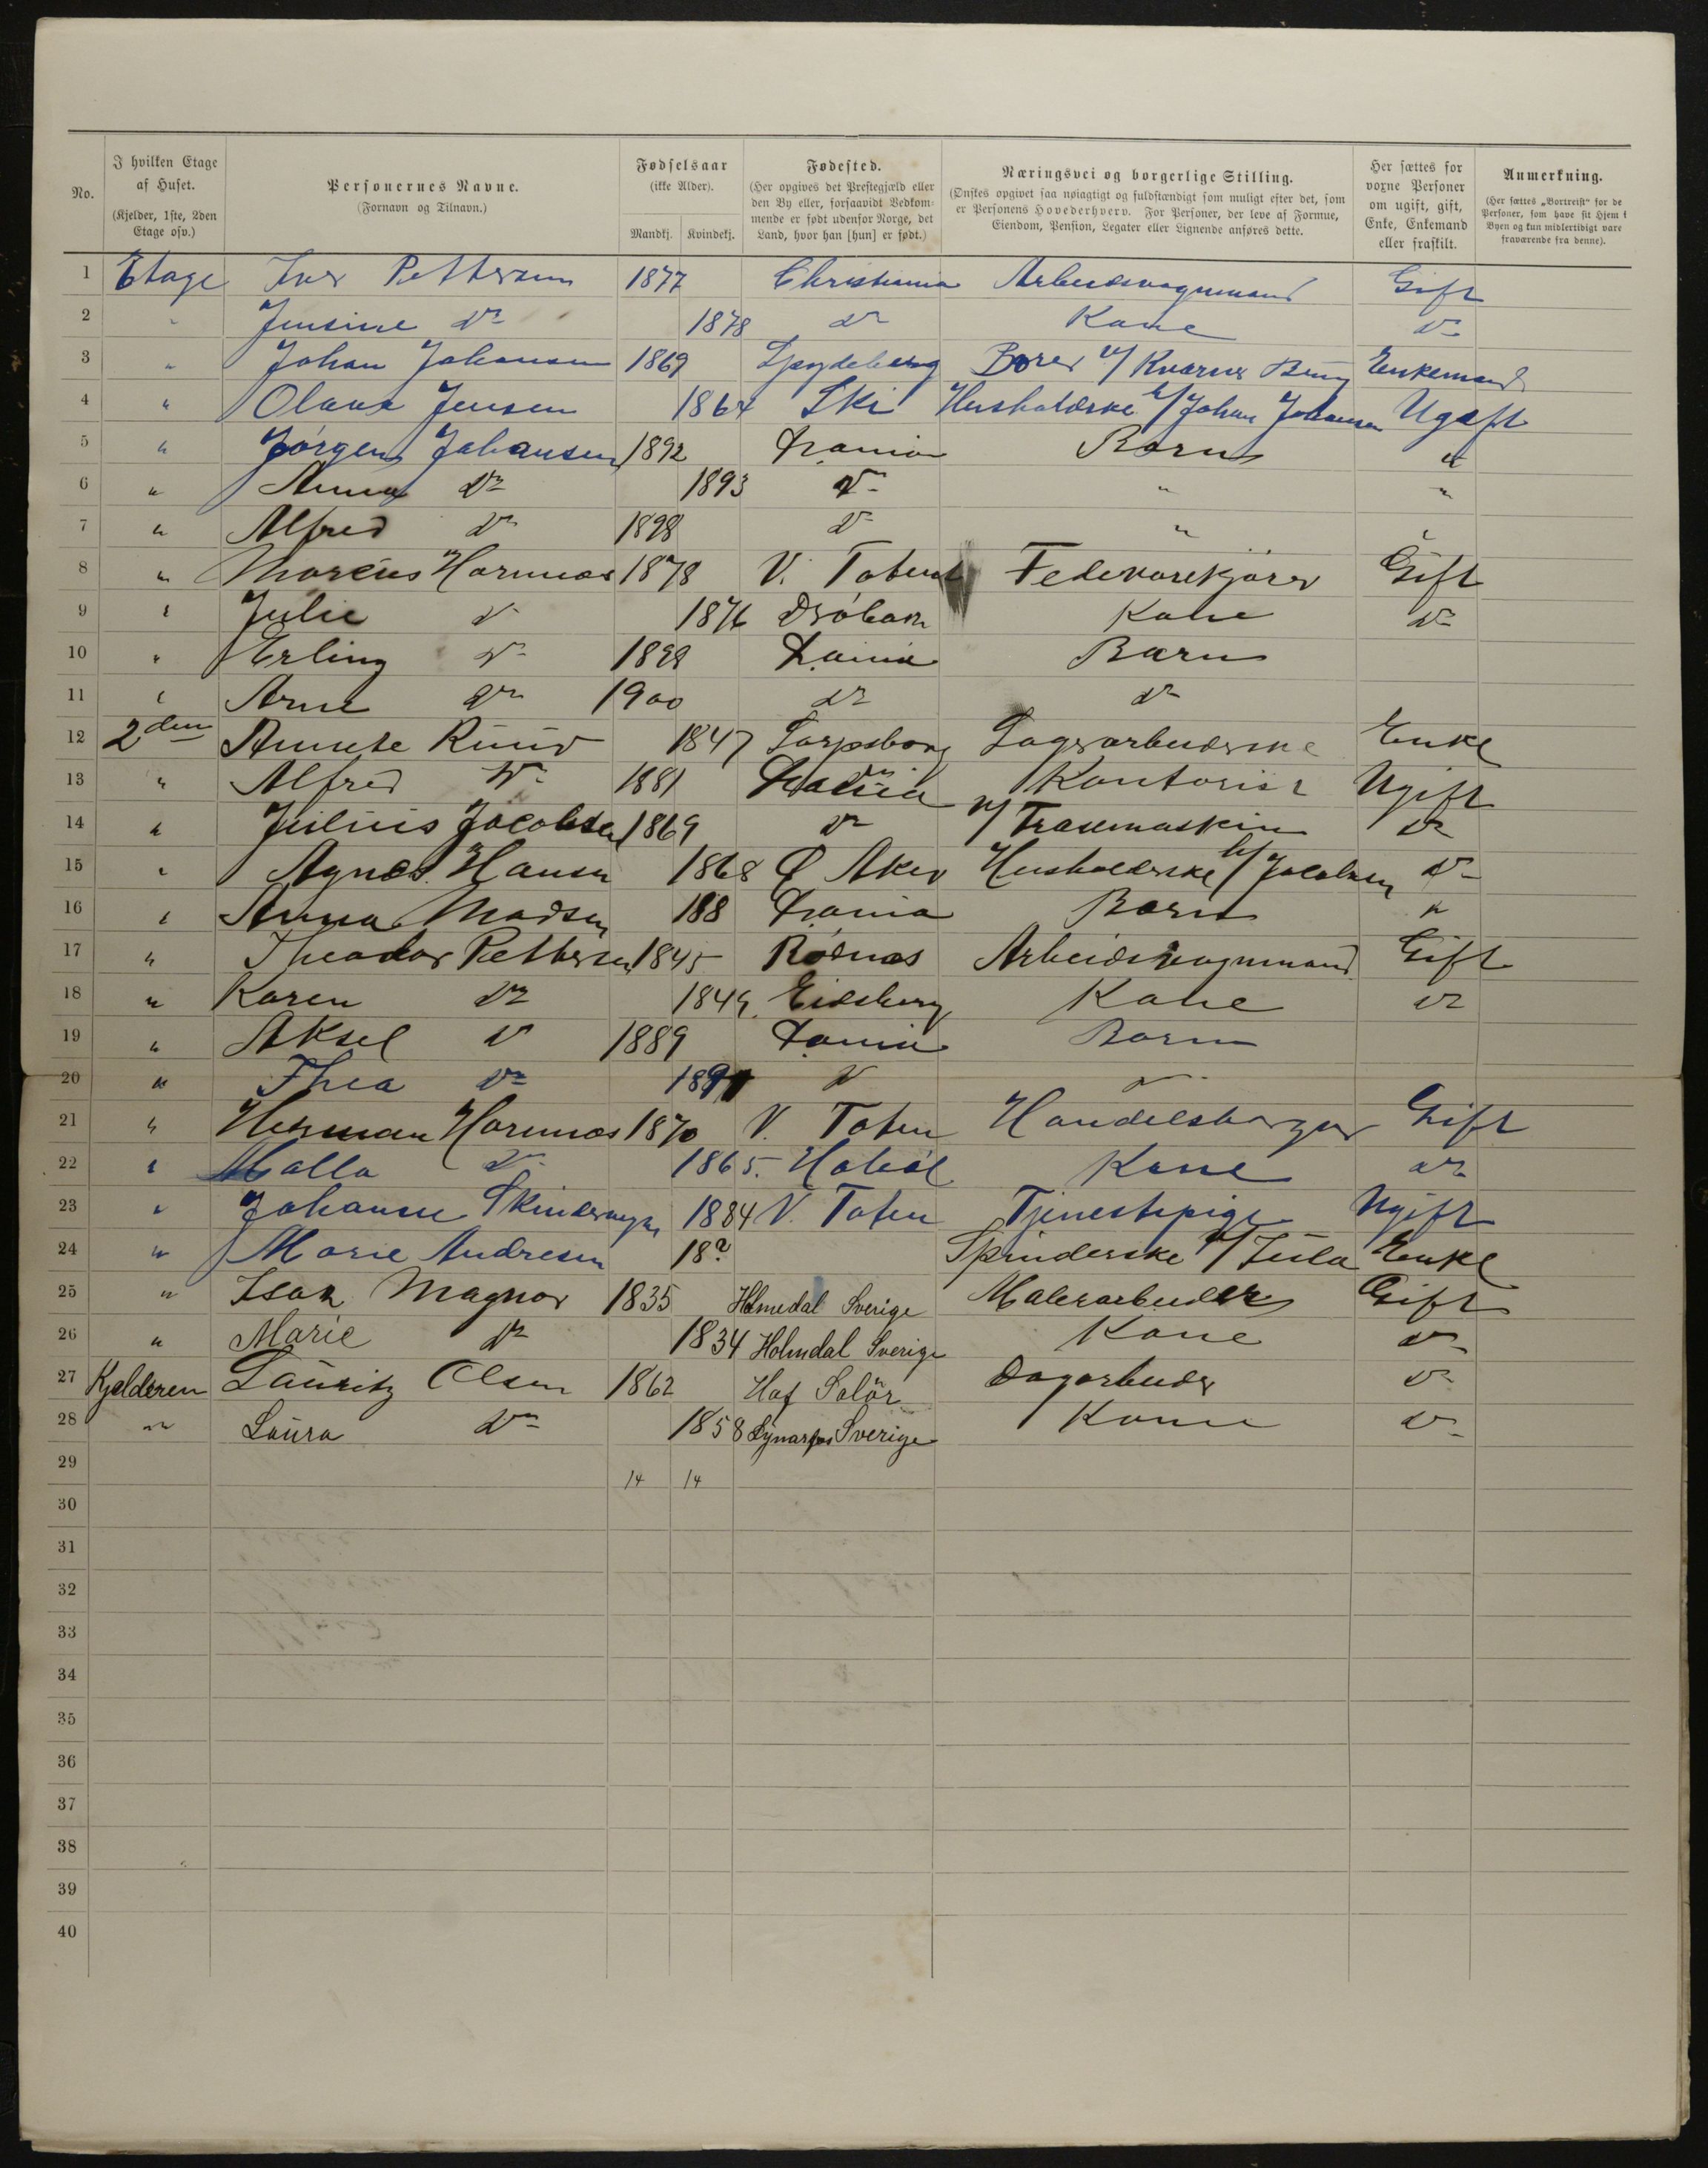 No.
I hvilken Etage af Huset. (Kjelder, 1ste, 2den Etage osv.)
Personernes Navne. (Fornavn og Tilnavn.)
Fødselsaar (ikke Alder). Mandkj. Kvindekj.
Fødested. (Her opgives det Prestegjæld eller den By eller, forsaavidt Vedkommende er født udenfor Norge, det Land, hvor han [hun] er født.)
Næringsvei og borgerlige Stilling. (Ønskes opgivet saa nøiagtigt og fuldstændigt som muligt efter det, som er Personens Hovederhverv. For Personer, der leve af Formue, Eiendom, Pension, Legater eller Lignende anføres dette.
Her sættes for voxne Personer om ugift, gift, Enke, Enkemand eller fraskilt.
Anmerkning. (Her sættes „Bortreist" for de Personer, som have sit Hjem i Byen og kun midlertidigt vare fraværende fra denne).
1 Etage Iver Pettersen 1877 Christiania Arbeidsvognmand Gift
2 " Jensine do 1878 do Kone do
3 " Johan Johansen 1869 Spydeberg Borer v/ Kværner Brug Enkemand
4 " Olava Jensen 1864 Ski Husholderske h/ Johan Johansen Ugift
5 " Jørgen Johansen 1892 Krania Barn "
6 " Anna do 1893 do " "
7 " Alfred do 1898 do " "
8 " Marcus Harmnæs 1878 V. Toten Fedevarekjører Gift
9 " Julie do 1876 Drøbak Kone do
10 " Erling do 1898 Krania Barn
11 " Arne do 1900 do do
12 2den Annette Ruud 1847 Sarpsborg Lagerarbeiderske Enke
13 " Alfred do 1881 Krania Kontorist Ugift
14 " Julius Jacobsen 1869 do v/ Trasemaskin do
15 " Agnes Hansen 1868 Ø Aker Husholderske h/ Jacobsen do
16 " Anna Madsen 188 Krania Barn "
17 " Theodor Pettersen 1845 Rødnæs Arbeidsvognmand Gift
18 " Karen do 1849 Eidsberg Kone do
19 " Aksel do 1889 Krania Barn
20 " Thea do 1891 do do
21 " Herman Harmnæs 1870 V. Toten Handelsborger Gift
22 " Malla do 1865. Hobøl Kone do
23 " 1884 V. Toten Tjenestepige Ugift
24 " Marie Andresen 18? Spinderske v/ Jula Enke
25 " Isak Magnor 1835 Holmedal Sverige Malerarbeider Gift
26 " Marie do 1834 Holmdal Sverige Kone do
27 Kjelderen Lauritz Olsen 1862 Hof Solør Dagarbeider do
28 " Laura do 1858 Sverige Kone do
29 14 14
30
31
32
33
34
35
36
37
38
39
40